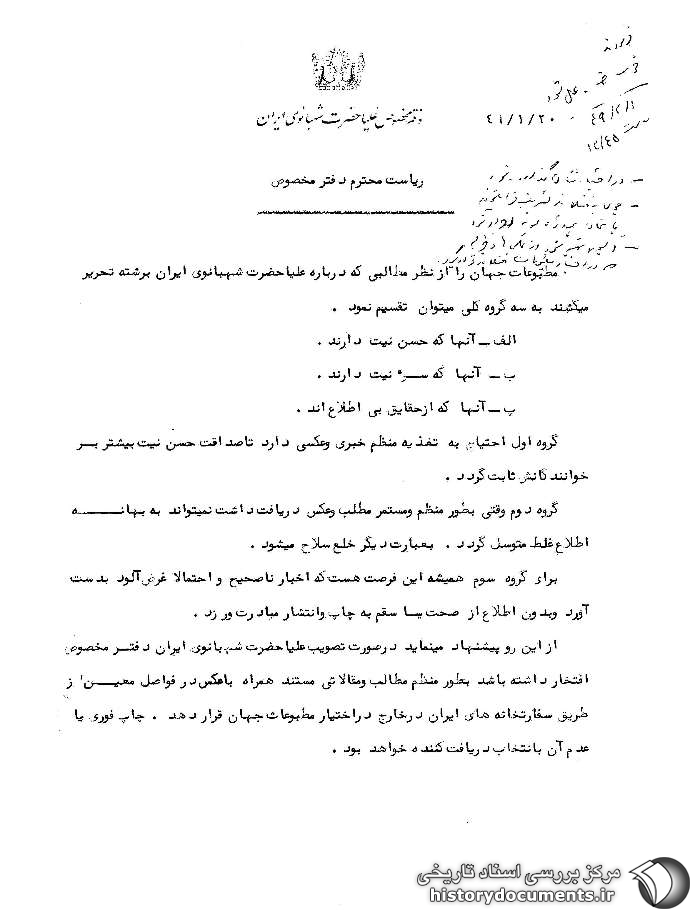 دفتر مخصوص علیاحضرت شهبانوی ایران
۴۱/۱/۲۰
۴۹/۲/۱
ریاست محترم دفتر مخصوص
مطبوعات جهان را از نظر مطالبی که درباره علیاحضرت شهبانوی ایران برشته تحریر
میکشند به سه گروه کلی میتوان تقسیم نمود .
الف ــ آنها که حسن نیت دارند .
ب ــ آنها که سوء نیت دارند .
پ ــ آنها که ازحقایق بی اطلاع اند .
گروه اول احتیاج به تغذیه منظم خبری وعکسی دارد تاصداقت حسن نیت بیشتر بر
خوانندگانش ثابت گردد .
گروه دوم وقتی بطور منظم ومستمر مطلب وعکس دریافت داشت نمیتواند به بهانه
اطلاع غلط متوسل گردد . بعبارت دیگر خلع سلاح میشود .
برای گروه سوم همیشه این فرصت هست که اخبار ناصحیح و احتمالا غرض آلود بدست
آورد وبدون اطلاع از صحت یا سقم به چاپ وانتشار مبادرت ورزد .
از این رو پیشنهاد مینماید درصورت تصویب علیاحضرت شهبانوی ایران دفتر مخصوص
افتخار داشته باشد بطور منظم مطالب ومقالاتی مستند همراه باعکس در فواصل معین از
طریق سفارتخانه های ایران درخارج دراختیار مطبوعات جهان قرار دهد . چاپ فوری یا
عدم آن بانتخاب دریافت کننده خواهد بود .
مرکز بررسی اسناد تاریخی
historydocuments.ir